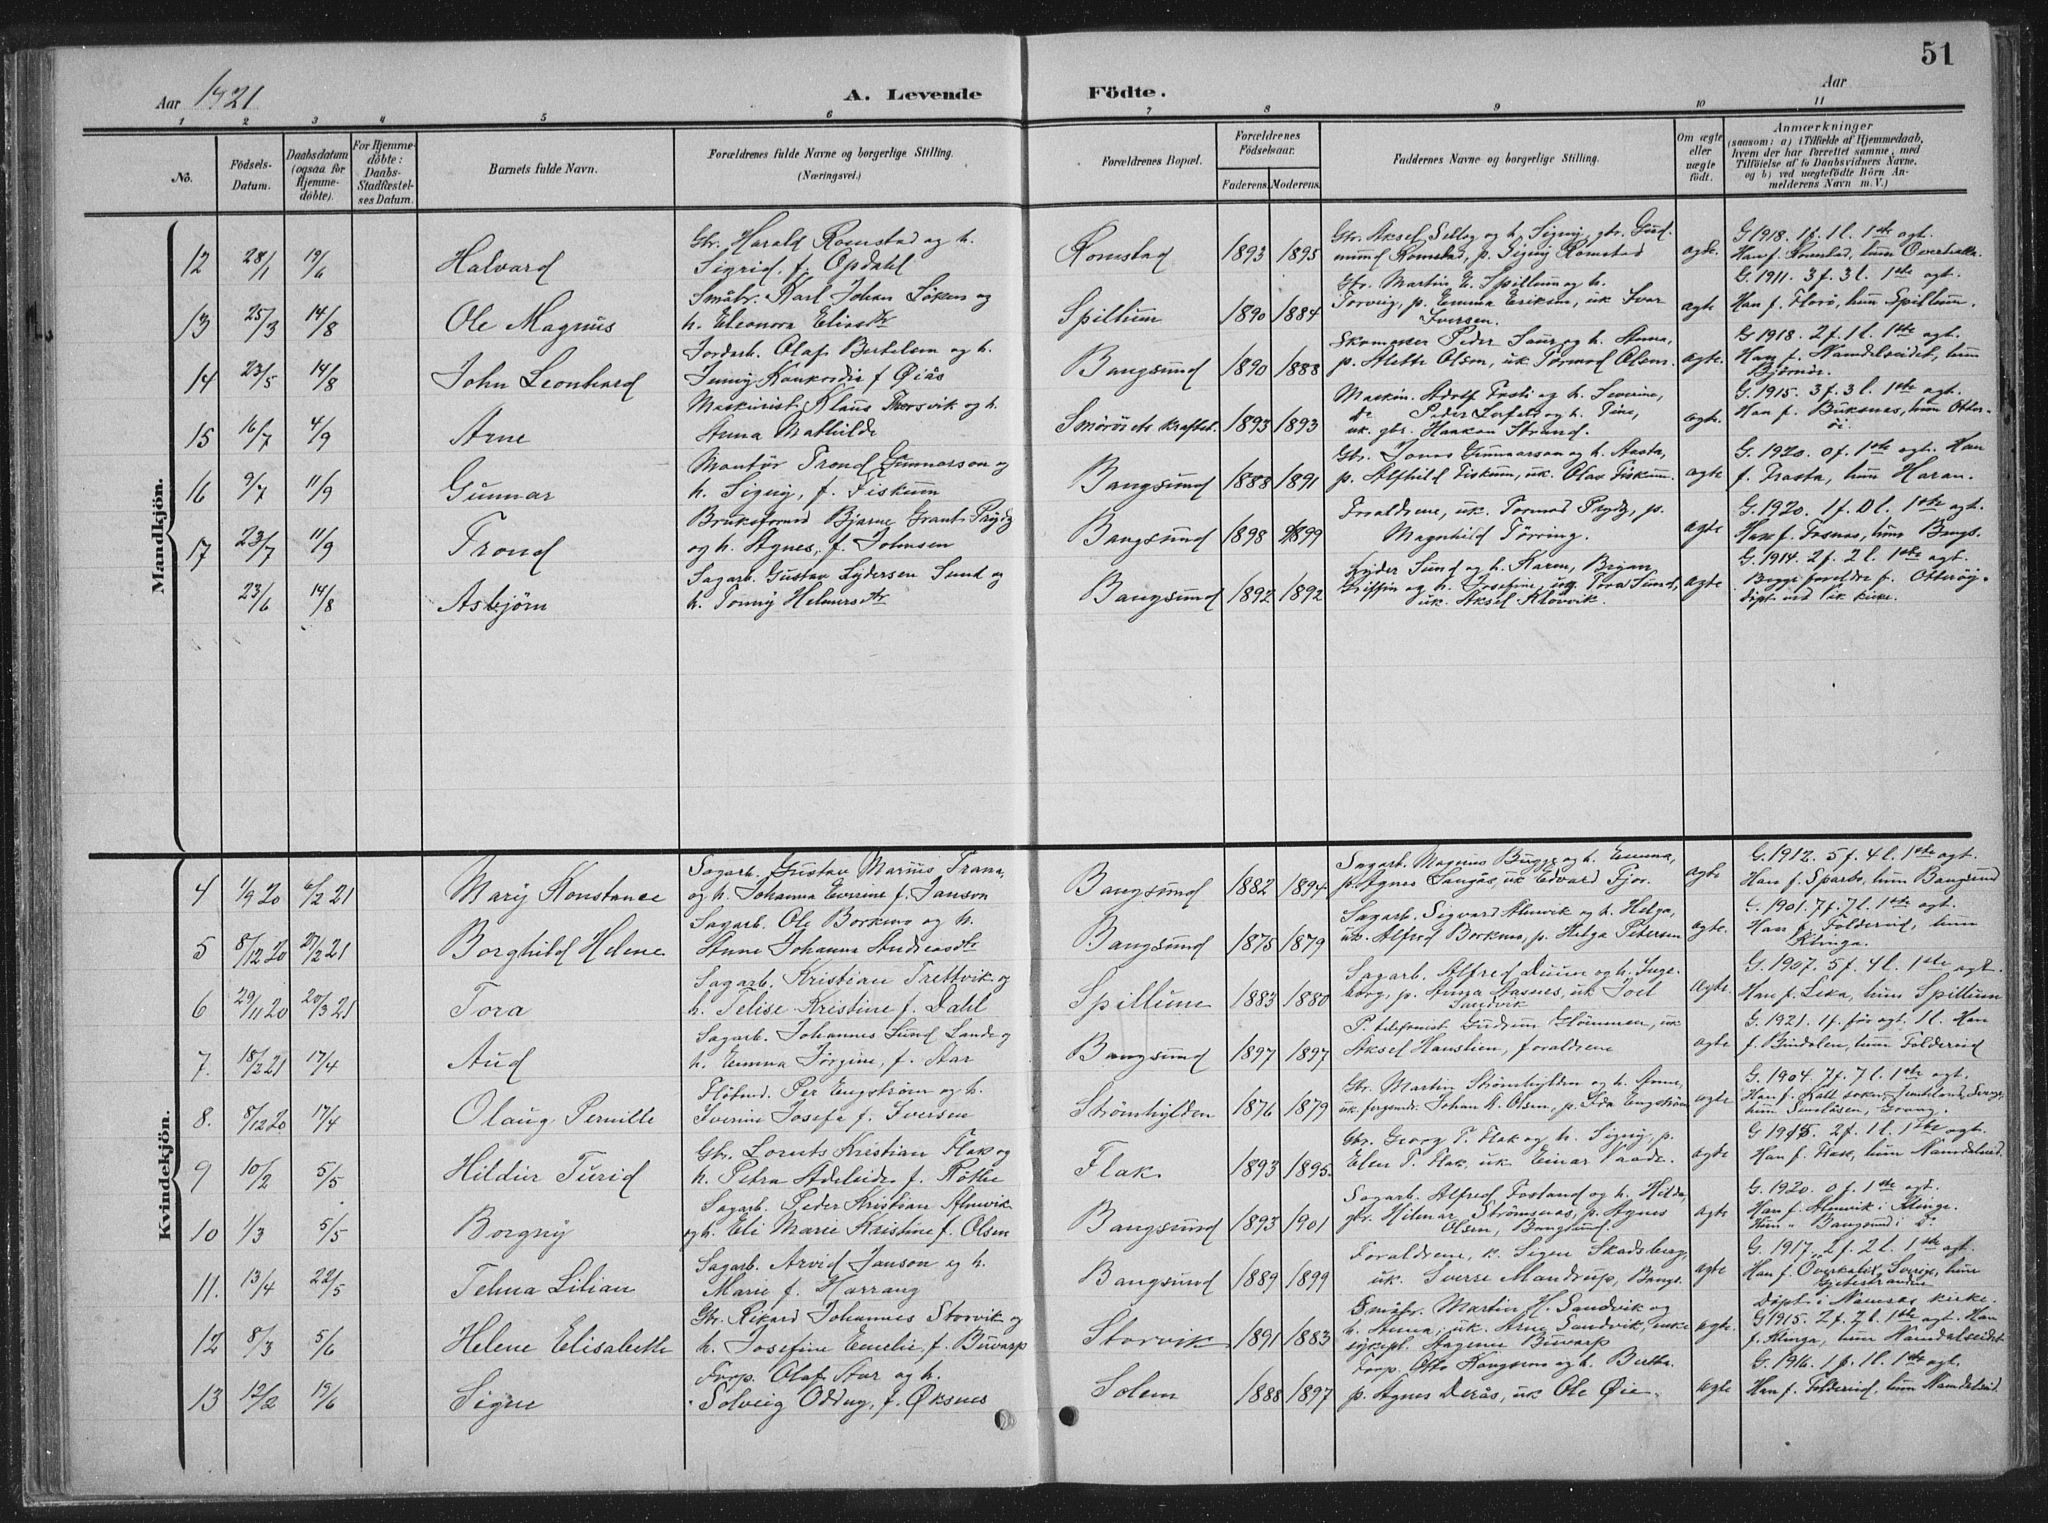 51
Aar 1921
A. Levende Födte.
Aar
1 2 3 4 5 6 7 8 9 10 11
No.
Födsels-Datum.
Daabsdatum (ogsaa for Hjemme-döbte).
For Hjemme-döbte: Daabs-Stadfæstel-ses Datum.
Barnets fulde Navn.
Forældrenes fulde Navne og borgerlige Stilling.
(Næringsvei.)
Forældrenes Bopæl.
Forældrenes Födselsaar.
Faderens. Moderens.
Faddernes Navne og borgerlige Stilling.
Om ægte eller uægte födt.
Anmærkninger
(saasom: a) i Tilfælde af Hjemmedaab, hvem der har forrettet samme, med Tilföielse af to Daabsvidners Navne, og b) ved uægtefödte Börn An-melderens Navn m. V.)
Mandkjön.
12 28/1 19/6 Halvard
Gbr. Harald Romstad og h.
Sigrid, f. Opdahl
Romstad 1893 1895
mund Romstad, p. Signy Romstad
ægte.
G. 1918. 1 f. 1 l. 1ste ægt.
Han f. Romstad, hun Overhalla.
13 25/3 14/8 Ole Magnus
Småbr. Karl Johan Löken og
h. Eleonora Eliasdtr
Spillum 1890 1884
Gbr. Martin E. Spillum og h.
Torveig, p. Emma Eriksen, uk Ivar
Iversen.
ægte
G. 1911. 3 f. 3 l. 1ste ægt.
Han f. Florö, hun Spillum.
14 23/5 14/8 John Leonhard
Jordarb. Olaf Bertelsen og h.
Jenny Konkordia f. Øiås
Bangsund 1890 1888
Skomager Peder Saur og h. Anna,
p. Mette Olsen, uk Tormod Olsen.
ægte.
G. 1918. 2 f. 1 l. 1ste ægt.
Han f. Namdalseidet, hun
Björnör.
15 16/7 4/9 Arne
Maskinist Klaus Thorsvik og h.
Anna Mathilde
Smöråsets kraftst. 1893 1893
Maskin. Adolf Frosti og h. Severine,
uk. gbr. Haakon Strand.
ægte.
G. 1915. 3 f. 3 l. 1ste ægt.
Han f. Buksnes, hun Otter-
öi.
16 9/7 11/9 Gunnar
Montör Trond Gunnarson og
h. Signy, f. Fiskum
Bangsund 1888 1891
Gbr. Jonas Gunnarson og h. Aasta,
p. Alfhild Fiskum, uk. Olav Fiskum.
ægte
G. 1920. 0 f. 1ste ægt. Han
f. Frosta, hun Haran.
17 23/7 11/9 Trond
Bruksformd Bjarne Grants Prydz
og h. Agnes, f. Johnsen
Bangsund 1898 1899
Forældrene, uk. Tormod Prydz, p.
Magnhild Törring.
ægte
G. 1920. 1 f. 0 l. 1ste ægt.
Han f. Fosnes, hun Bangs.
23/6 14/8 Asbjörn
Sagarb. Gustav Lydersen Sund og
h. Tonny Helmersdtr
Bangsund 1892 1892
Lyder Sund og h. Karen, Brynn
Griffin og h. Josefine, Tora Sund,
uk. Aksel Klövvik.
ægte
G. 1914. 2 f. 2 l. 1ste ægt.
Begge foreldre f. Otteröy.
Kvindekjön.
4 1/9 20 6/2 21 Mary Konstance
Sagarb. Gustav Marius Trana,
og h. Johanna Everine f. Janson
Bangsund 1882 1894
Sagarb. Magnus Bugge og h. Emma,
p. Agnes Sangås, uk Edvard Fjor.
ægte
G. 1912. 5 f. 4 l. 1ste ægt.
Han f. Sparbo, hun Bangsund
5 8/12 20 27/2 21 Borghild Helene
Sagarb. Ole Borkmo og h.
Anne Johanna Andreasdtr
Bangsund 1875 1879
Sagarb. Sigvard Almvik og h. Helga,
uk. Alfred Borkmo, p. Helga Petersen
ægte.
G. 1901. 7 f. 7 l. 1ste ægt.
Han f. Foldereid, hun
Klinga.
6 29/11 20 20/3 21 Tora
Sagarb. Kristian Trettvik og
h. Telise Kristine f. Dahl
Spillum 1883 1880
Sagarb. Alfred Duun og h. Inge-
borg, p. Anna Aasnes, uk Joel
Sandvik
ægte.
G. 1907. 5 f. 4 l. 1ste ægt.
Han f. Leka, hun Spillum
7. 18/2 21 17/4 Aud
Sagarb. Johannes Lund Lande og
h. Emma Jörgine, f. Aar
Bangsund 1897 1897
P. telefonist Gudrun Glömmen, uk
Aksel Hanstien, foraldrene
ægte
G. 1921. 1 f. för ægt. 1 l. Han
f. Bindalen, hun Foldereid
8. 8/12 20 17/4 Olaug Pernille
Flötmd. Per Engström og h.
Iverine Josefa f. Iversen
Strömhylden 1876 1879
Gbr. Martin Strömhylden og h. Anne,
uk. Johan A. Olsen, p. Ida Engström
ægte
G. 1904. 7 f. 7 l. 1ste ægt.
hun Grong.
9 10/2 5/5 Hildur Turid
Gbr. Lorents Kristian Flak og
h. Petra Adeleide f. Röthe
Flak 1893 1895.
Gbr. Georg P. Flak og h. Signy, p.
Elen P. Flak, uk Einar Vaade.
ægte
G 1915. 2 f. 1 l. 1ste ægt.
Han f. Flak, hun Namdalseid
10 1/3 5/5 Borgny
Sagarb. Peder Kristian Almvik
og h. Eli Marie Kristine f. Olsen
Bangsund 1893 1901
Sagarb. Alfred Fosland og h. Hilda,
gbr. Hilmar Strömsnes, p. Agnes
Olsen, Bangsund.
ægte
G. 1920. 0 f. 1ste ægt.
Han f. Almvik i Klinga
Hun " Bangsund i Do
11. 13/4 22/5 Telma Lilian
Sagarb. Arvid Janson og h.
Marie f. Harrang
Bangsund 1889 1899
Foraldrene, p. Signe Skadsberg,
uk. Sverre Mandrup, Bangs.
ægte
G. 1917. 2 f. 2 l. 1ste ægt.
Han f. Överkalix, Sverige, hun
Gjetestranden
Döpt i Namsos kirke.
12 8/3 5/6 Helene Elisabeth
Gbr. Rikard Johannes Storvik og
h. Josefine Emelie f. Buvarp
Storvik 1891 1883
Småbr. Martin H. Sandvik og
h. Anna; uk. Arne Sandvik, enke
Hagena Buvarp
ægte.
G 1915. 2 f. 2 l. 1ste ægt. Han
f. Klinga, hun Namdalseidet
13 12/2 19/6 Signe
Forp. Olaf Star og h.
Solveig Oddny, f. Øksnes
Solem 1888 1897
Forp. Otto Kongsmo og h. Berta
p. Agnes Derås, uk Ole Øie.
ægte
G. 1916. 1 f. 1 l. 1ste ægt.
Han f. Foldereid, hun Namdalseid.